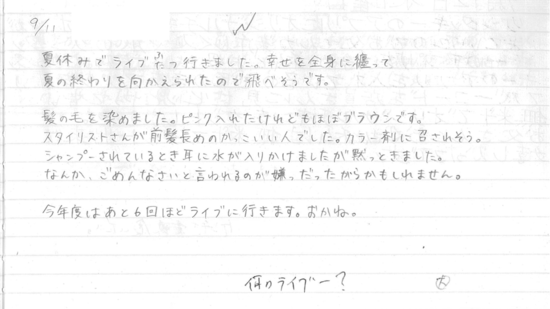 9/11
夏休みでライブ六つ行きました。幸せを全身に纏って
夏の終わりを向かえられたので飛べそうです。
髪の毛を染めました。ピンク入れたけれどもほぼブラウンです。
スタイリストさんが前髪長めのかっこいい人でした。カラー剤に召されそう。
シャンプーされているとき耳に水が入りかけましたが黙っときました。
なんか、ごめんなさいと言われるのが嫌だったからかもしれません。
今年度はあと6回ほどライブに行きます。おかね。
何のライブー?